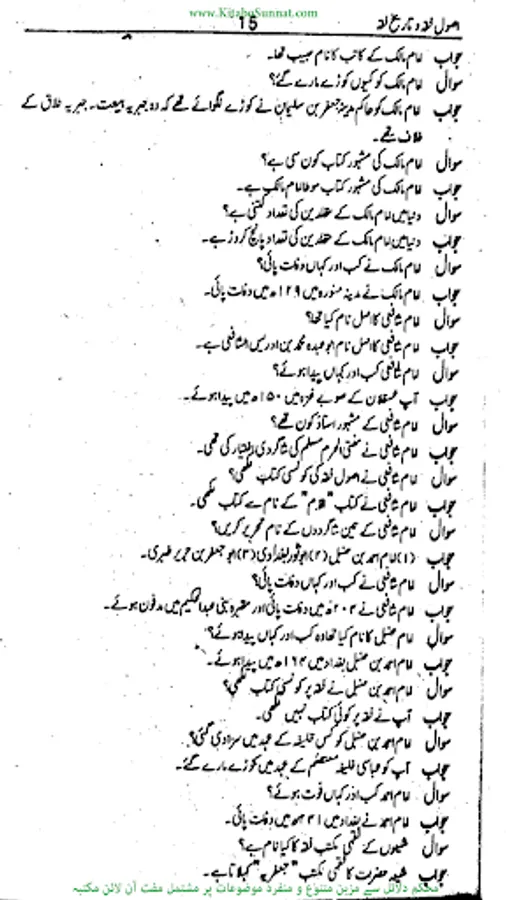 www.KitaboSunnat.com
اصول فقہ و تاریخ فقہ
15
جواب امام مالک کے کاتب کا نام حبیب تھا۔
سوال امام مالک کو کیوں کوڑے مارے گئے؟
جواب امام مالک کو حاکم مدینہ جعفر بن سلیمان نے کوڑے لگوائے تھے کہ وہ جبریہ بیعت۔ جبریہ طلاق کے
خلاف تھے۔
سوال امام مالک کی مشہور کتاب کون سی ہے؟
جواب امام مالک کی مشہور کتاب موطا امام مالک ہے۔
سوال دنیا میں امام مالک کے مقلدین کی تعداد کتنی ہے؟
جواب دنیا میں امام مالک کے مقلدین کی تعداد پانچ کروڑ ہے۔
سوال امام مالک نے کب اور کہاں وفات پائی؟
جواب امام مالک نے مدینہ منورہ میں ۱۲۹ھ میں وفات پائی۔
سوال امام شافعی کا اصل نام کیا تھا؟
جواب امام شافعی کا اصل نام ابو عبدہ محمد بن ادریس الشافعی ہے۔
سوال امام شافعی کب اور کہاں پیدا ہوئے؟
جواب آپ عسقلان کے صوبے غزہ میں ۱۵۰ھ میں پیدا ہوئے۔
سوال امام شافعی کے مشہور استاذ کون تھے؟
جواب امام شافعی نے مفتی الحرم مسلم کی شاگردی اختیار کی تھی۔
سوال امام شافعی نے اصول فقہ کی کونسی کتاب لکھی؟
جواب امام شافعی نے کتاب "الام" کے نام سے کتاب لکھی۔
سوال امام شافعی کے تین شاگردوں کے نام تحریر کریں؟
جواب (۱) امام احمد بن حنبل (۲) ابو ثور بغدادی (۳) ابو جعفر بن جریر طبری۔
سوال امام شافعی نے کب اور کہاں وفات پائی؟
جواب امام شافعی نے ۲۰۴ھ میں وفات پائی اور مقبرہ بنی عبدالحکیم میں مدفون ہوئے۔
سوال امام حنبل کا نام کیا تھا وہ کب اور کہاں پیدا ہوئے؟
جواب امام احمد بن حنبل بغداد میں ۱۶۴ھ میں پیدا ہوئے۔
سوال امام احمد بن حنبل نے فقہ پر کونسی کتاب لکھی؟
جواب آپ نے فقہ پر کوئی کتاب نہیں لکھی۔
سوال امام احمد بن حنبل کو کس خلیفہ کے عہد میں سزا دی گئی؟
جواب آپ کو عباسی خلیفہ معتصم کے عہد میں کوڑے مارے گئے۔
سوال امام احمد کب اور کہاں فوت ہوئے؟
جواب امام احمد نے بغداد میں ۲۴۱ھ میں وفات پائی۔
سوال شیعوں کے فقہی مکتب فقہ کا کیا نام ہے؟
جواب شیعہ حضرت کا فقہی مکتب "جعفریہ" کہلاتا ہے۔
محکم دلائل سے مزین متنوع و منفرد موضوعات پر مشتمل مفت آن لائن مکتبہ